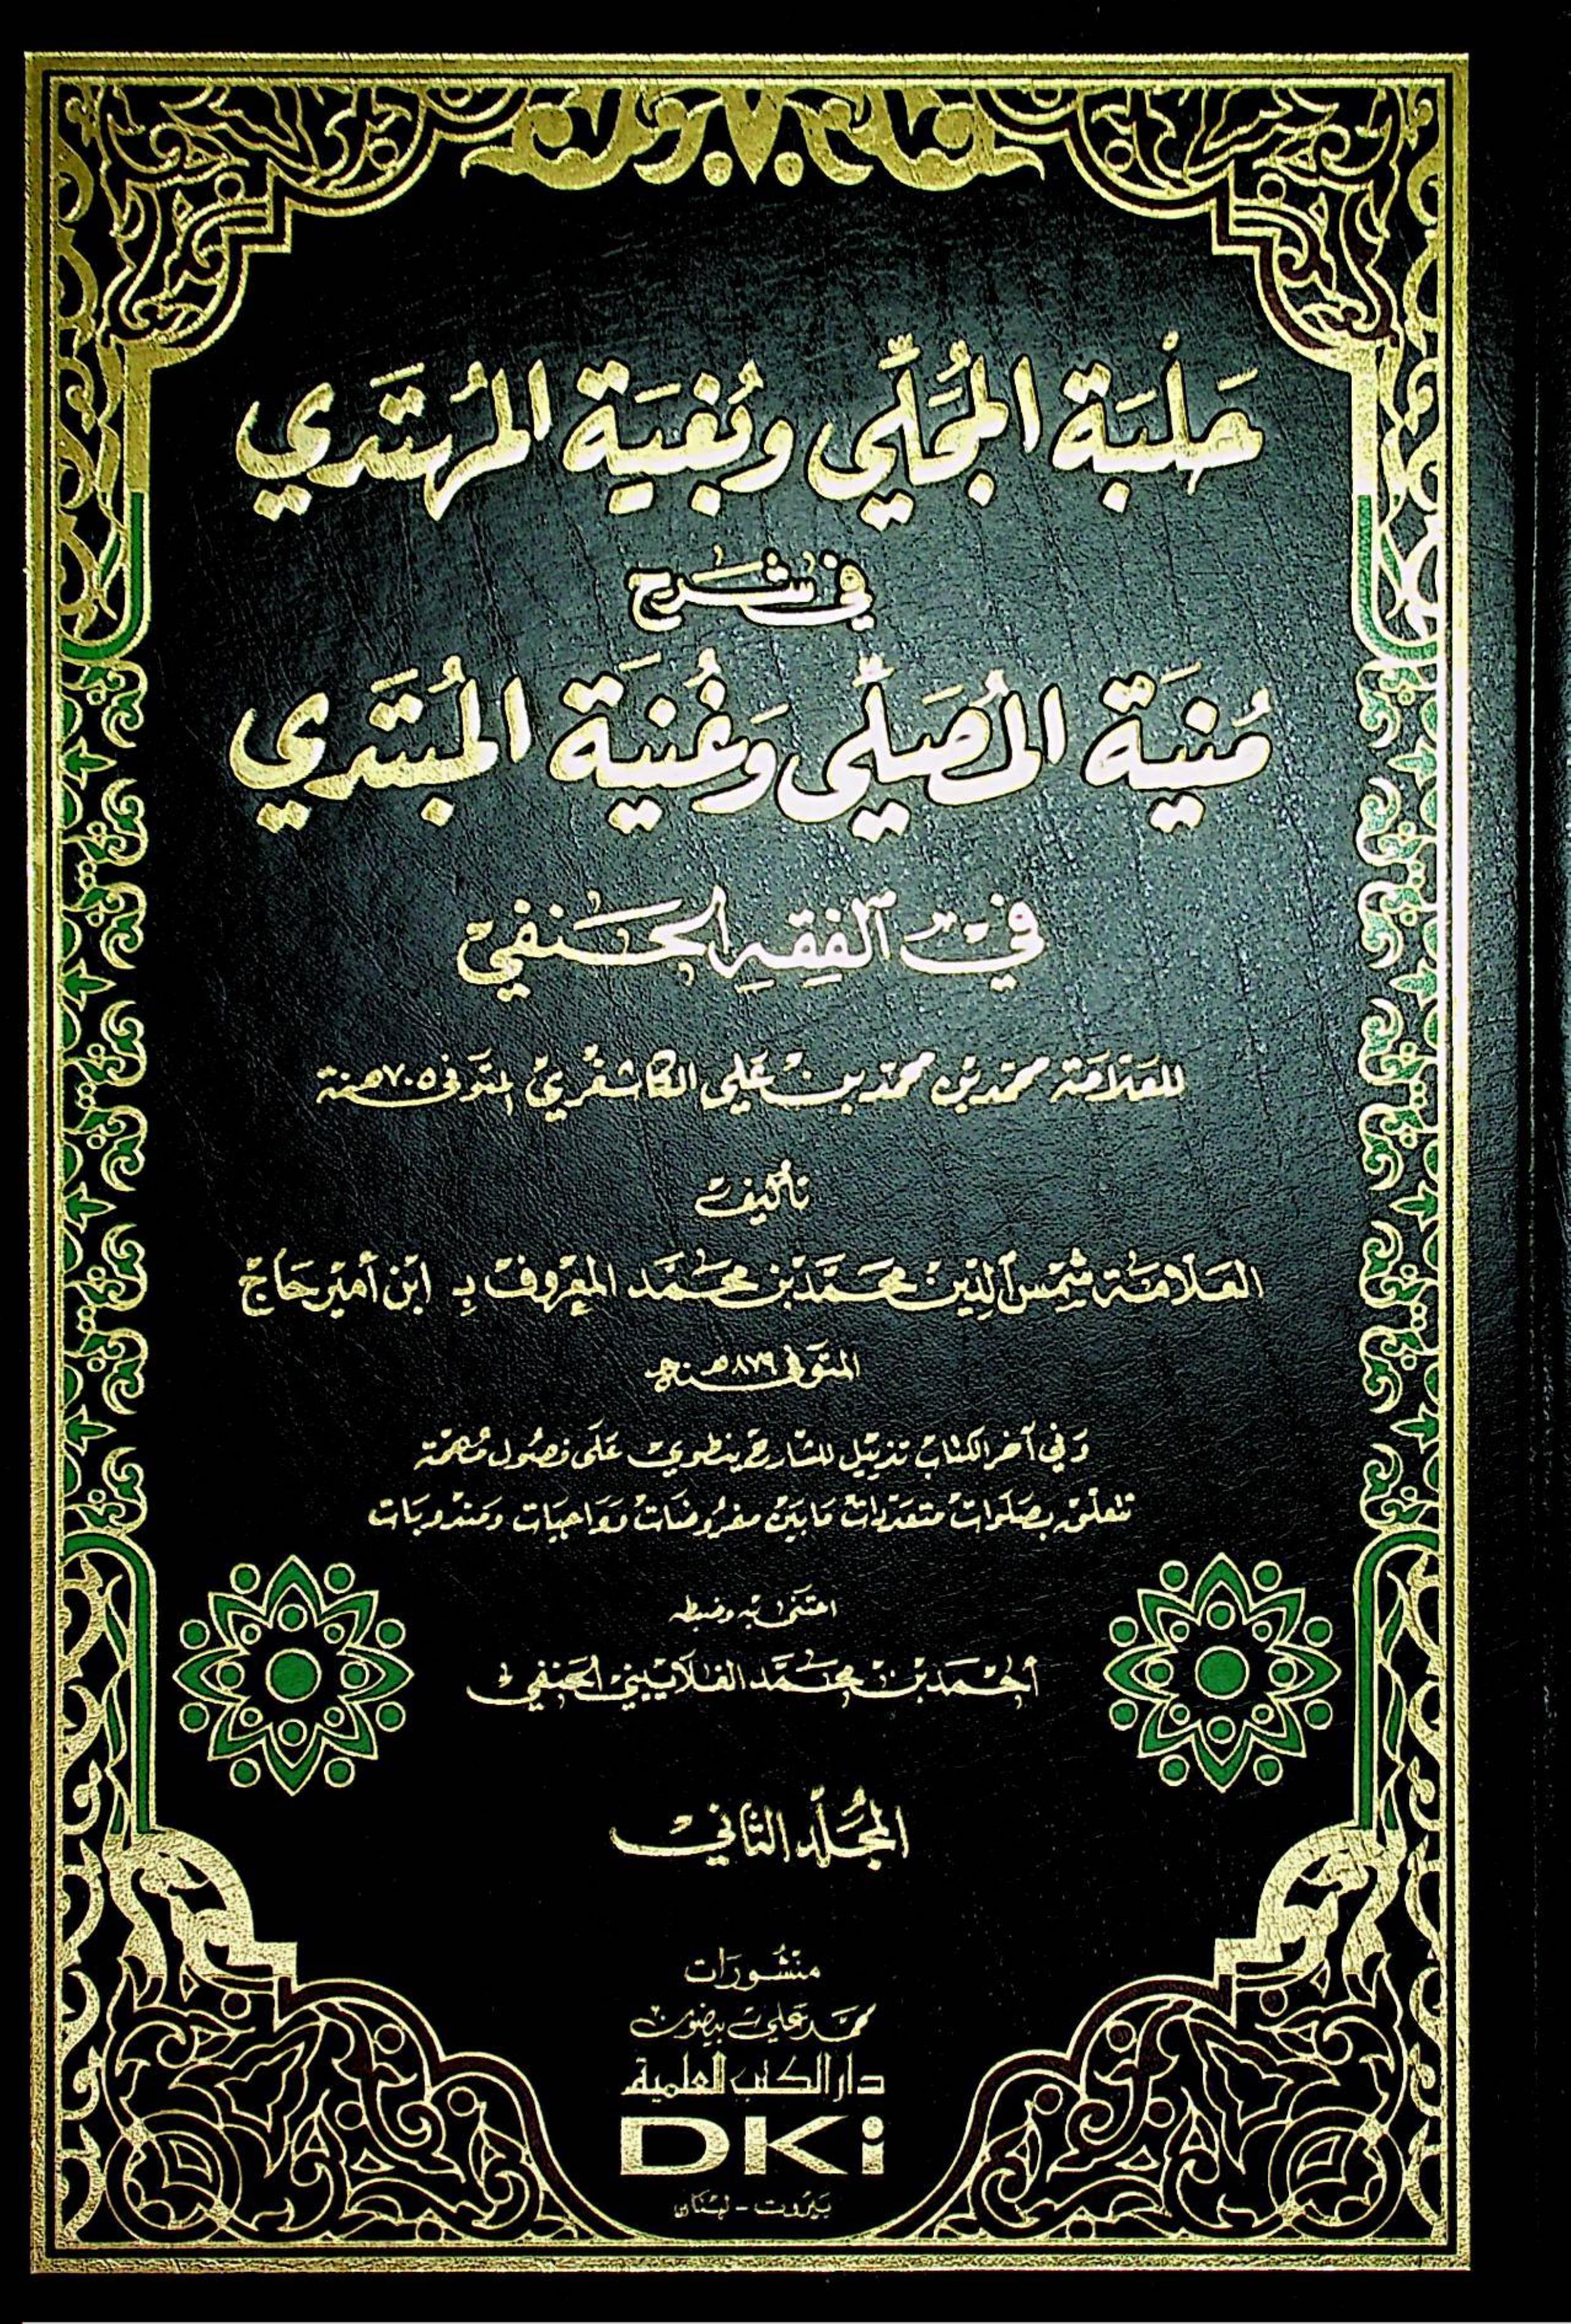 حَلْبَة المُجَلِّي وبُغيَة المُهتَدي
في شرح
مُنيَة المُصَلِّي وَغُنيَة المُبتَدي
في الفِقهِ الحَنفي
للعَلّامَة محمّد بن محمّد بن عَلي الكاشغري المتوفى سنة ٧٠٥هـ
تأليف
العَلّامَة شمس الدِّين محمَّد بن محمَّد المعروف بـ ابن أمير حَاج
المتوفى سنة ٨٧٩هـ
وَفي آخر الكتاب تذييل للشارح ينطوي عَلى فصُول مُهمّة
تتعلّق بصَلوات متعدّدات مَا بَين مفروضَات وَوَاجبَات وَمَندوبَات
اعتنى به وضبطه
أحمد بن محمَّد الغلاييني الحنفي
المُجَلّد الثاني
منشورات
محمد علي بيضون
دار الكتب العلمية
DKi
بيروت - لبنان